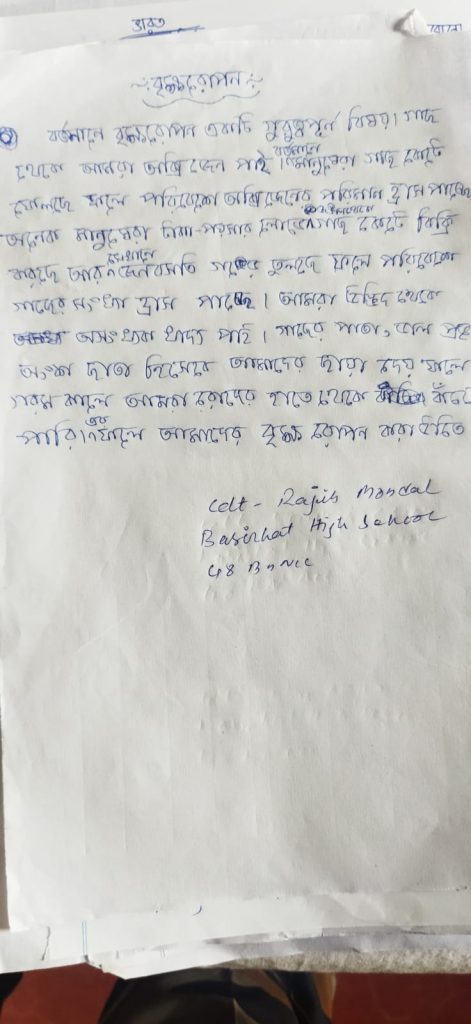 ভারত
বৃক্ষরোপন
বর্তমানে বৃক্ষরোপন একটি গুরুত্বপূর্ণ বিষয়। গাছ
থেকে আমরা অক্সিজেন পাই। বর্তমানে মানুষেরা গাছ কেটে
ফেলছে ফলে পরিবেশে অক্সিজেনের পরিমান হ্রাস পাচ্ছে
অনেক মানুষেরা টাকা-পয়সার লোভে গাছ কেটে বিক্রি
করছে আর সেখানে জনবসতি গড়ে তুলছে ফলে পরিবেশে
গাছের সংখ্যা হ্রাস পাচ্ছে। আমরা উদ্ভিদ থেকে
অসংখ্যক খাদ্য পাই। গাছের পাতা, ফল
অংশ ছাতা হিসেবে আমাদের ছায়া দেয় ফলে
গরম কালে আমরা রোদের হাত থেকে বাঁচতে
পারি। এর ফলে আমাদের বৃক্ষ রোপন করা উচিত
Cdt - Rajib Mondal
Basirhat High School
48 Bn NCC